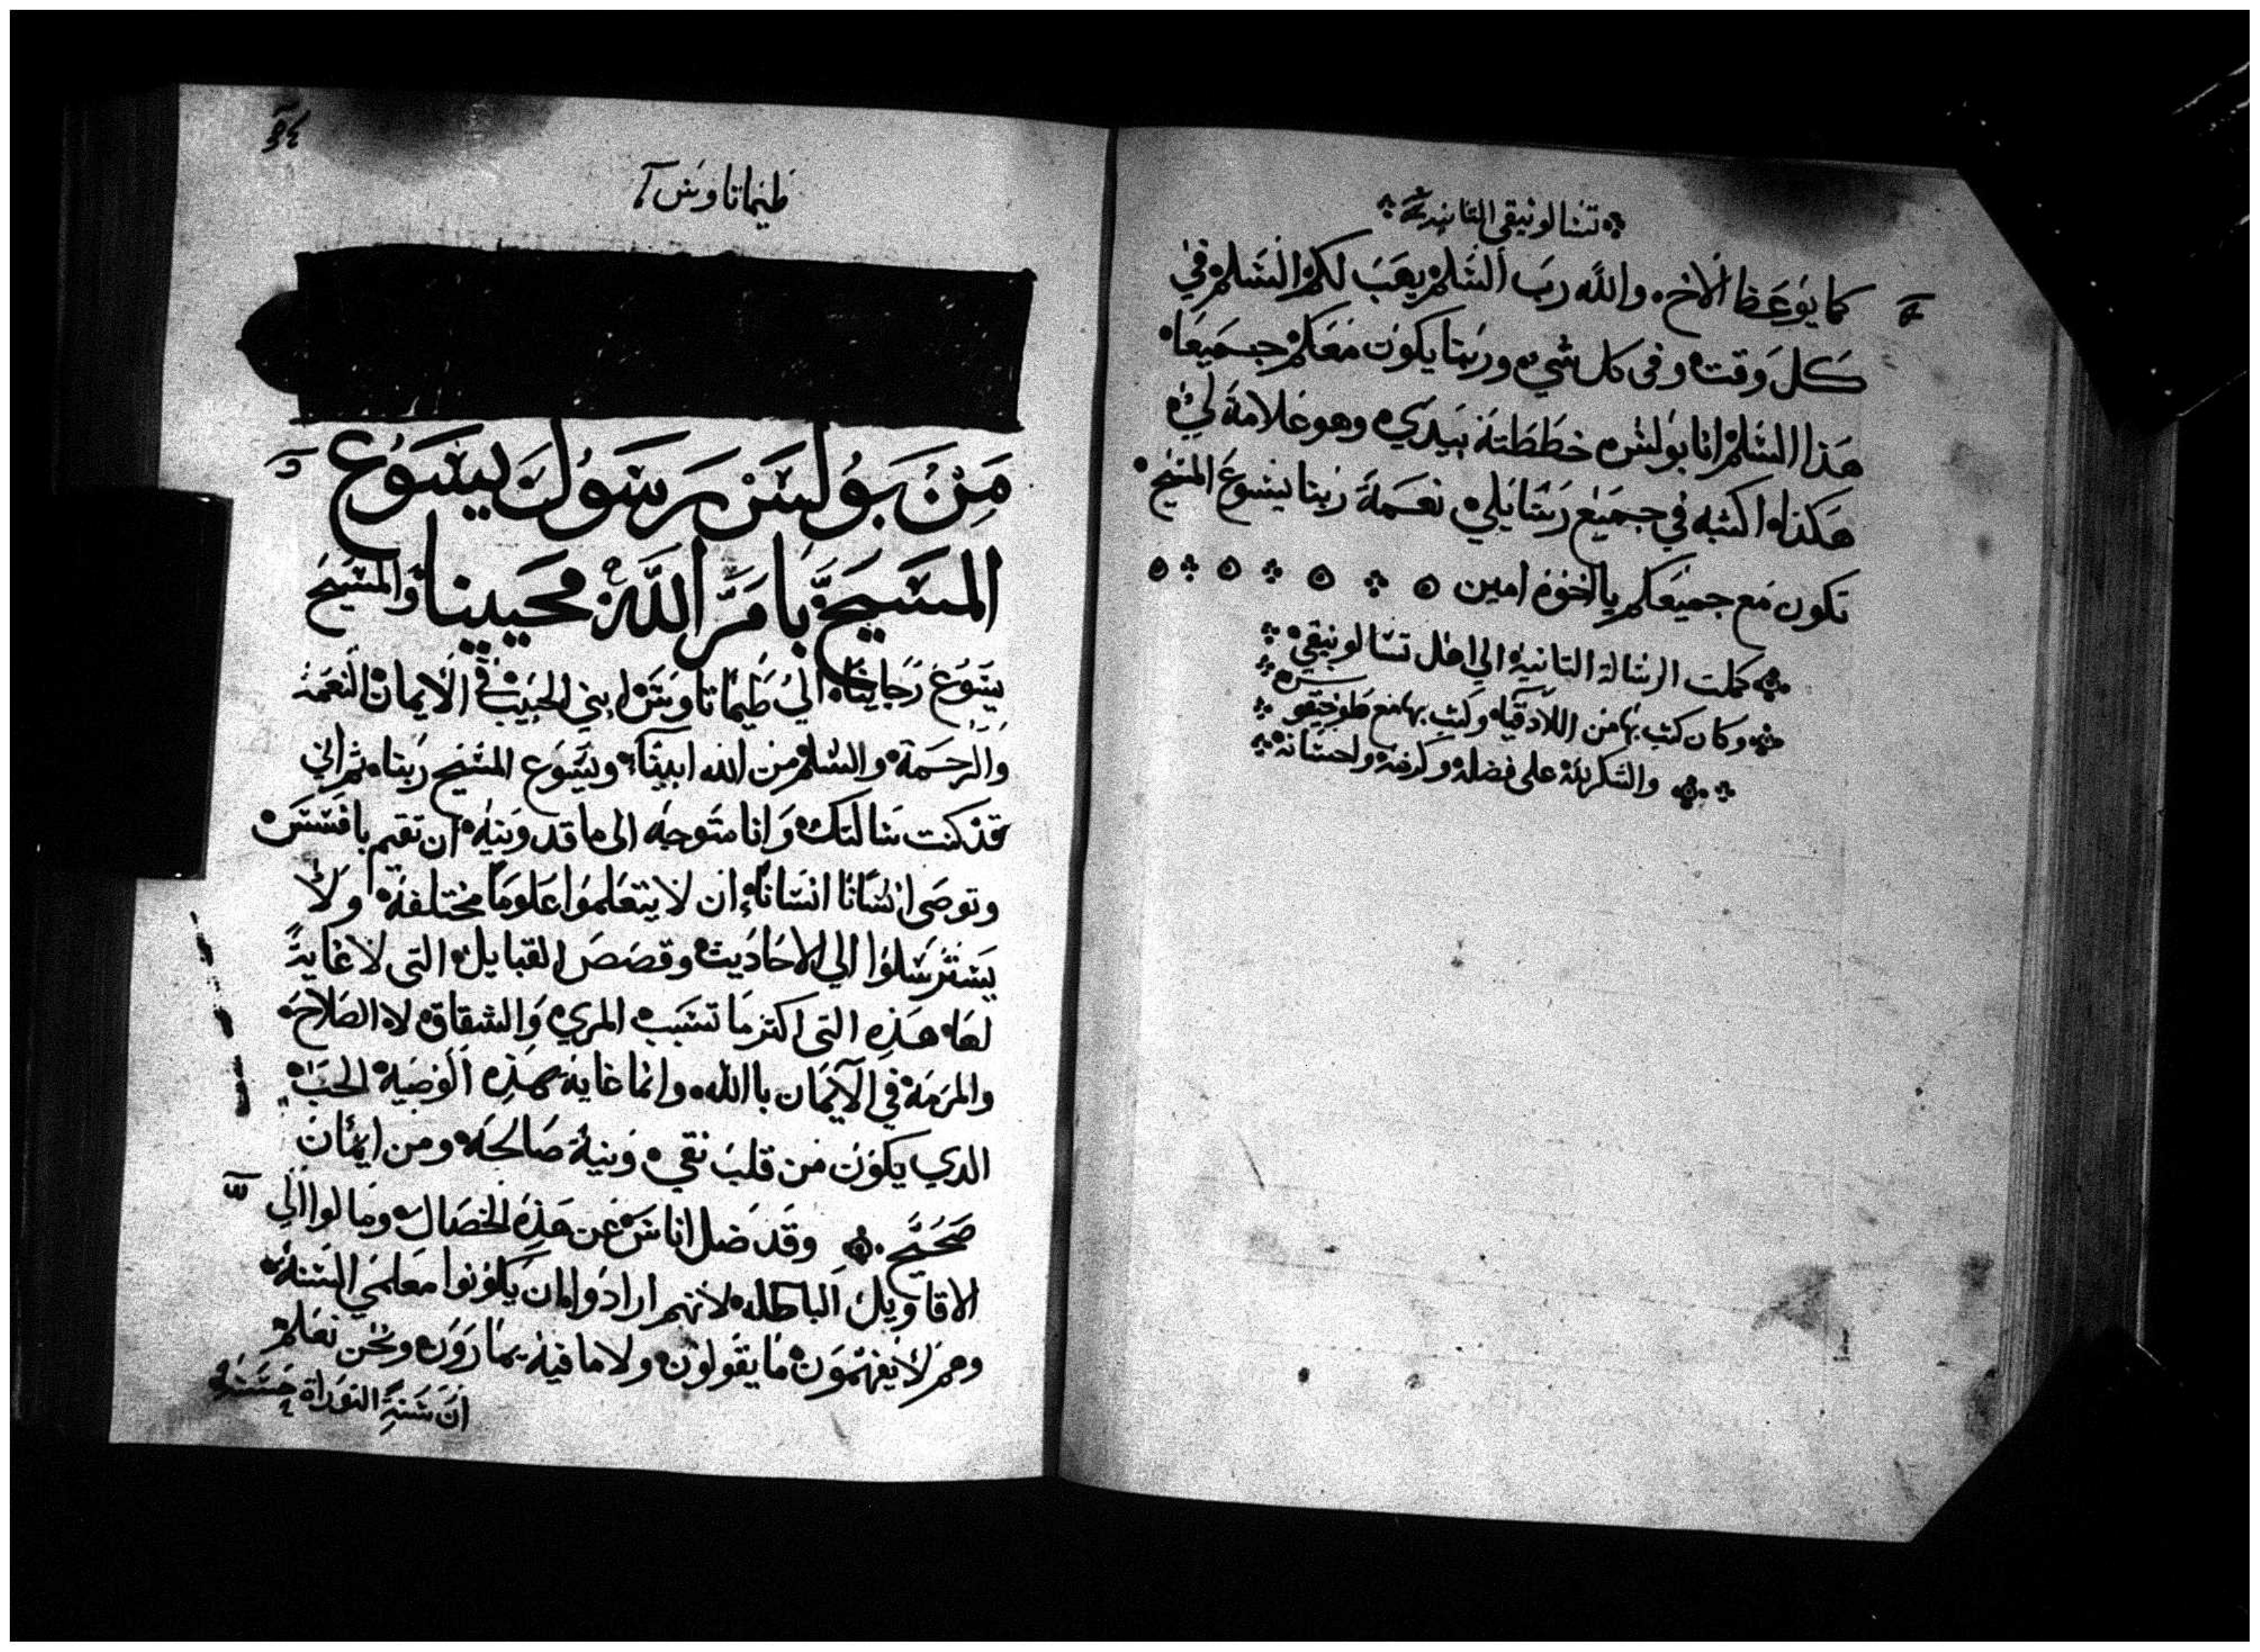 تسالونيقى الثانية
كما يوعظ الاخ. والله رب السلم يهب لكم السلم في
كل وقت وفى كل شيء وربنا يكون معكم جميعا
هذا السلم انا بولس خططته بيدي وهو علامة لي
هكذا اكتبه في جميع رسايلي نعمة ربنا يسوع المسيح
تكون مع جميعكم يا اخوة امين
كملت الرسالة الثانية الي اهل تسالونيقي
وكان كتب بها من اللادقيا وكتب بها مع طوخيقوس
والشكر لله على فضله وكرمه واحسانه
طيماتاوس
من بولس رسول يسوع
المسيح بامر الله محيينا والمسيح
يسوع رجاينا الي طيماتاوس ابني الحبيب في الايمان النعمة
والرحمة والسلم من الله ابينا ويسوع المسيح ربنا. ثم اني
قد كنت سالتك وانا متوجه الى ماقدونية ان تقيم بافسس
وتوصى انسانا انسانا ان لا يتعلموا علوما مختلفة ولا
يسترسلوا الي الاحاديث وقصص القبايل التى لا غاية
لها هذه التى اكثر ما تسبب المري والشقاق لا الصلاح
والمرمة في الايمان باالله. وانما غاية هذه الوصية الحب
الدي يكون من قلب نقي ونية صالحة ومن ايمان
صحيح وقد ضل اناس عن هذه الخصال ومالوا الي
الاقاويل الباطله لانهم ارادوا ان يكونوا معلمي السنة
وهم لا يفهمون ما يقولون ولا ما فيه يمارون ونحن نعلم
ان سنة التوراة حسنة